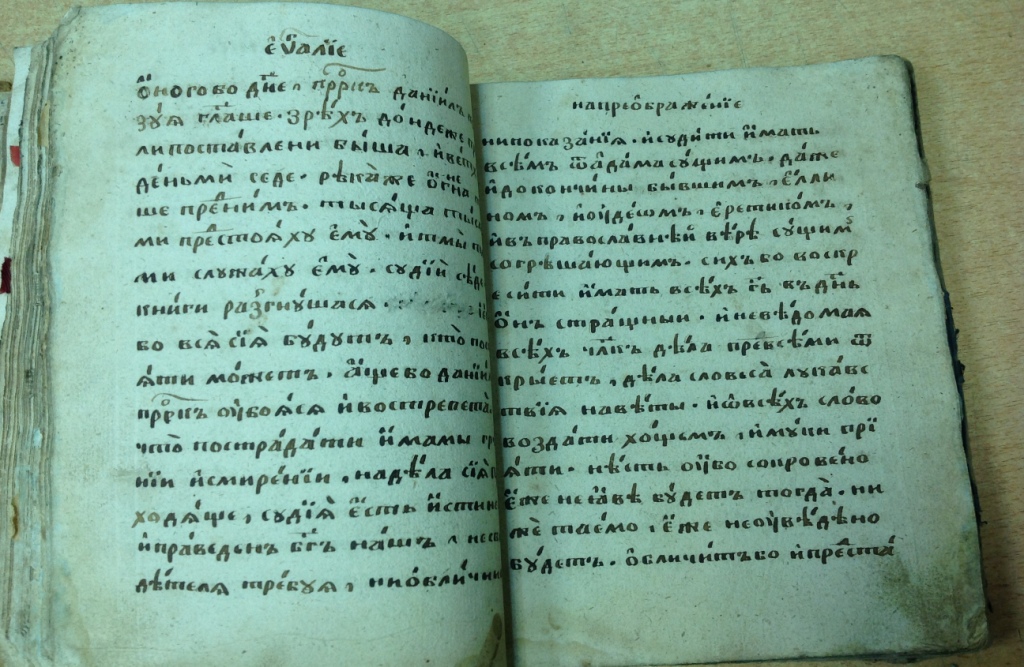 е҆ѵⷢ҇алїе
ѻ҆ного бо дн҃е, прⷪ҇ркъ данїилъ
зꙋѧ гл҃аше. зрѣ́хъ до́ндеже
ли поставлени бы́ша, и҆ ве́тх
де́ньми̑ седе. рѣка̀ же ѻ҆́гнена
ше пре́ⷣнимъ. тысѧ́ща ты́сѧ
ми преⷣстоѧ́хꙋ е҆мꙋ̀. и҆ тмы̀ т
ми слꙋжа́хꙋ е҆мꙋ̀. сꙋдїй сѣ́де
кни́ги разгнꙋ́шасѧ.
бо всѧ̀ сїѧ̀ бꙋ́дꙋтъ, кто̀ пос
ѧ́ти мо́жетъ. а҆́ще бо данїи́л
прⷪ҇ркъ оу҆боѧ́сѧ и҆ вострепета̀.
что̀ пострада́ти и҆́мамы гр
нїи и҆ смире́нїи, на дѣ́ла сїѧ̀
ходѧ́ще, сꙋдїѧ̀ е҆́сть и҆́стине
и҆ пра́ведьнъ бг҃ъ на́шъ, и не св
дѣ́телѧ тре́бꙋѧ, ни ѻ҆бличи
на преѻбраже́нїе
ни показа́нїѧ. и҆ сꙋди́ти и҆́мать
всѣ́мъ ѿ а҆да́ма сꙋ́щимъ. да́же
и҆ до кончи́ны бы́вшимъ, е҆́лли
номъ, и҆ ю҆де́ѡмъ, е҆ретико́мъ,
и҆ въ правосла́внѣй вѣ́рѣ сꙋ́щимъ
согрѣша́ющимъ. си́хъ бо воскр
еси́ти и҆́мать всѣ́хъ гдⷭ҇ь въ де́нь
ѻ҆́нъ стра́шныи. и҆ невѣ́домаѧ
всѣ́хъ чл҃къ дѣ́ла пре́дъ всѣ́ми ѿ
кры́етъ, дѣ́ла словеса̀ лꙋка́вс
твїѧ навѣ́ты. и҆ ѡ҆ всѣ́хъ сло́во
возда́ти хо́щемъ, и҆ мꙋ́ки прї
ѧ́ти. нѣ́сть оу҆бо сокрове́но
е҆́же не ꙗ҆́вѣ бꙋ́детъ тогда̀. ни
жѐ таемо, е҆́же не оу҆вѣ́дѣно
бꙋ́детъ. ѻ҆бличи́тъ бо и҆ преⷣста́